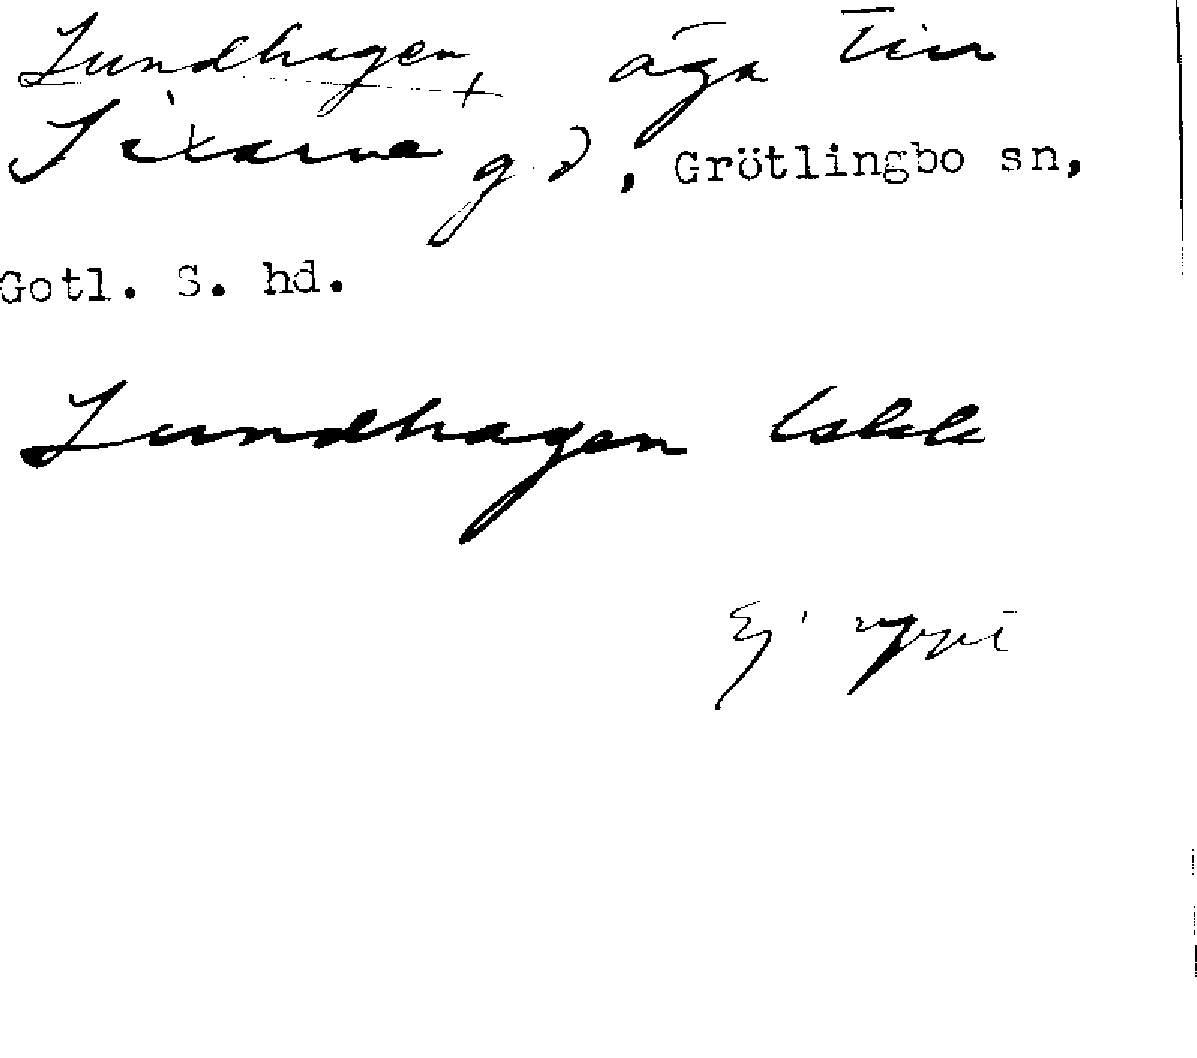 Lundhagen + äga till
Sixarve gd, Grötlingbo sn,
Gotl. S. hd.
Lundhagen
Ej uppt